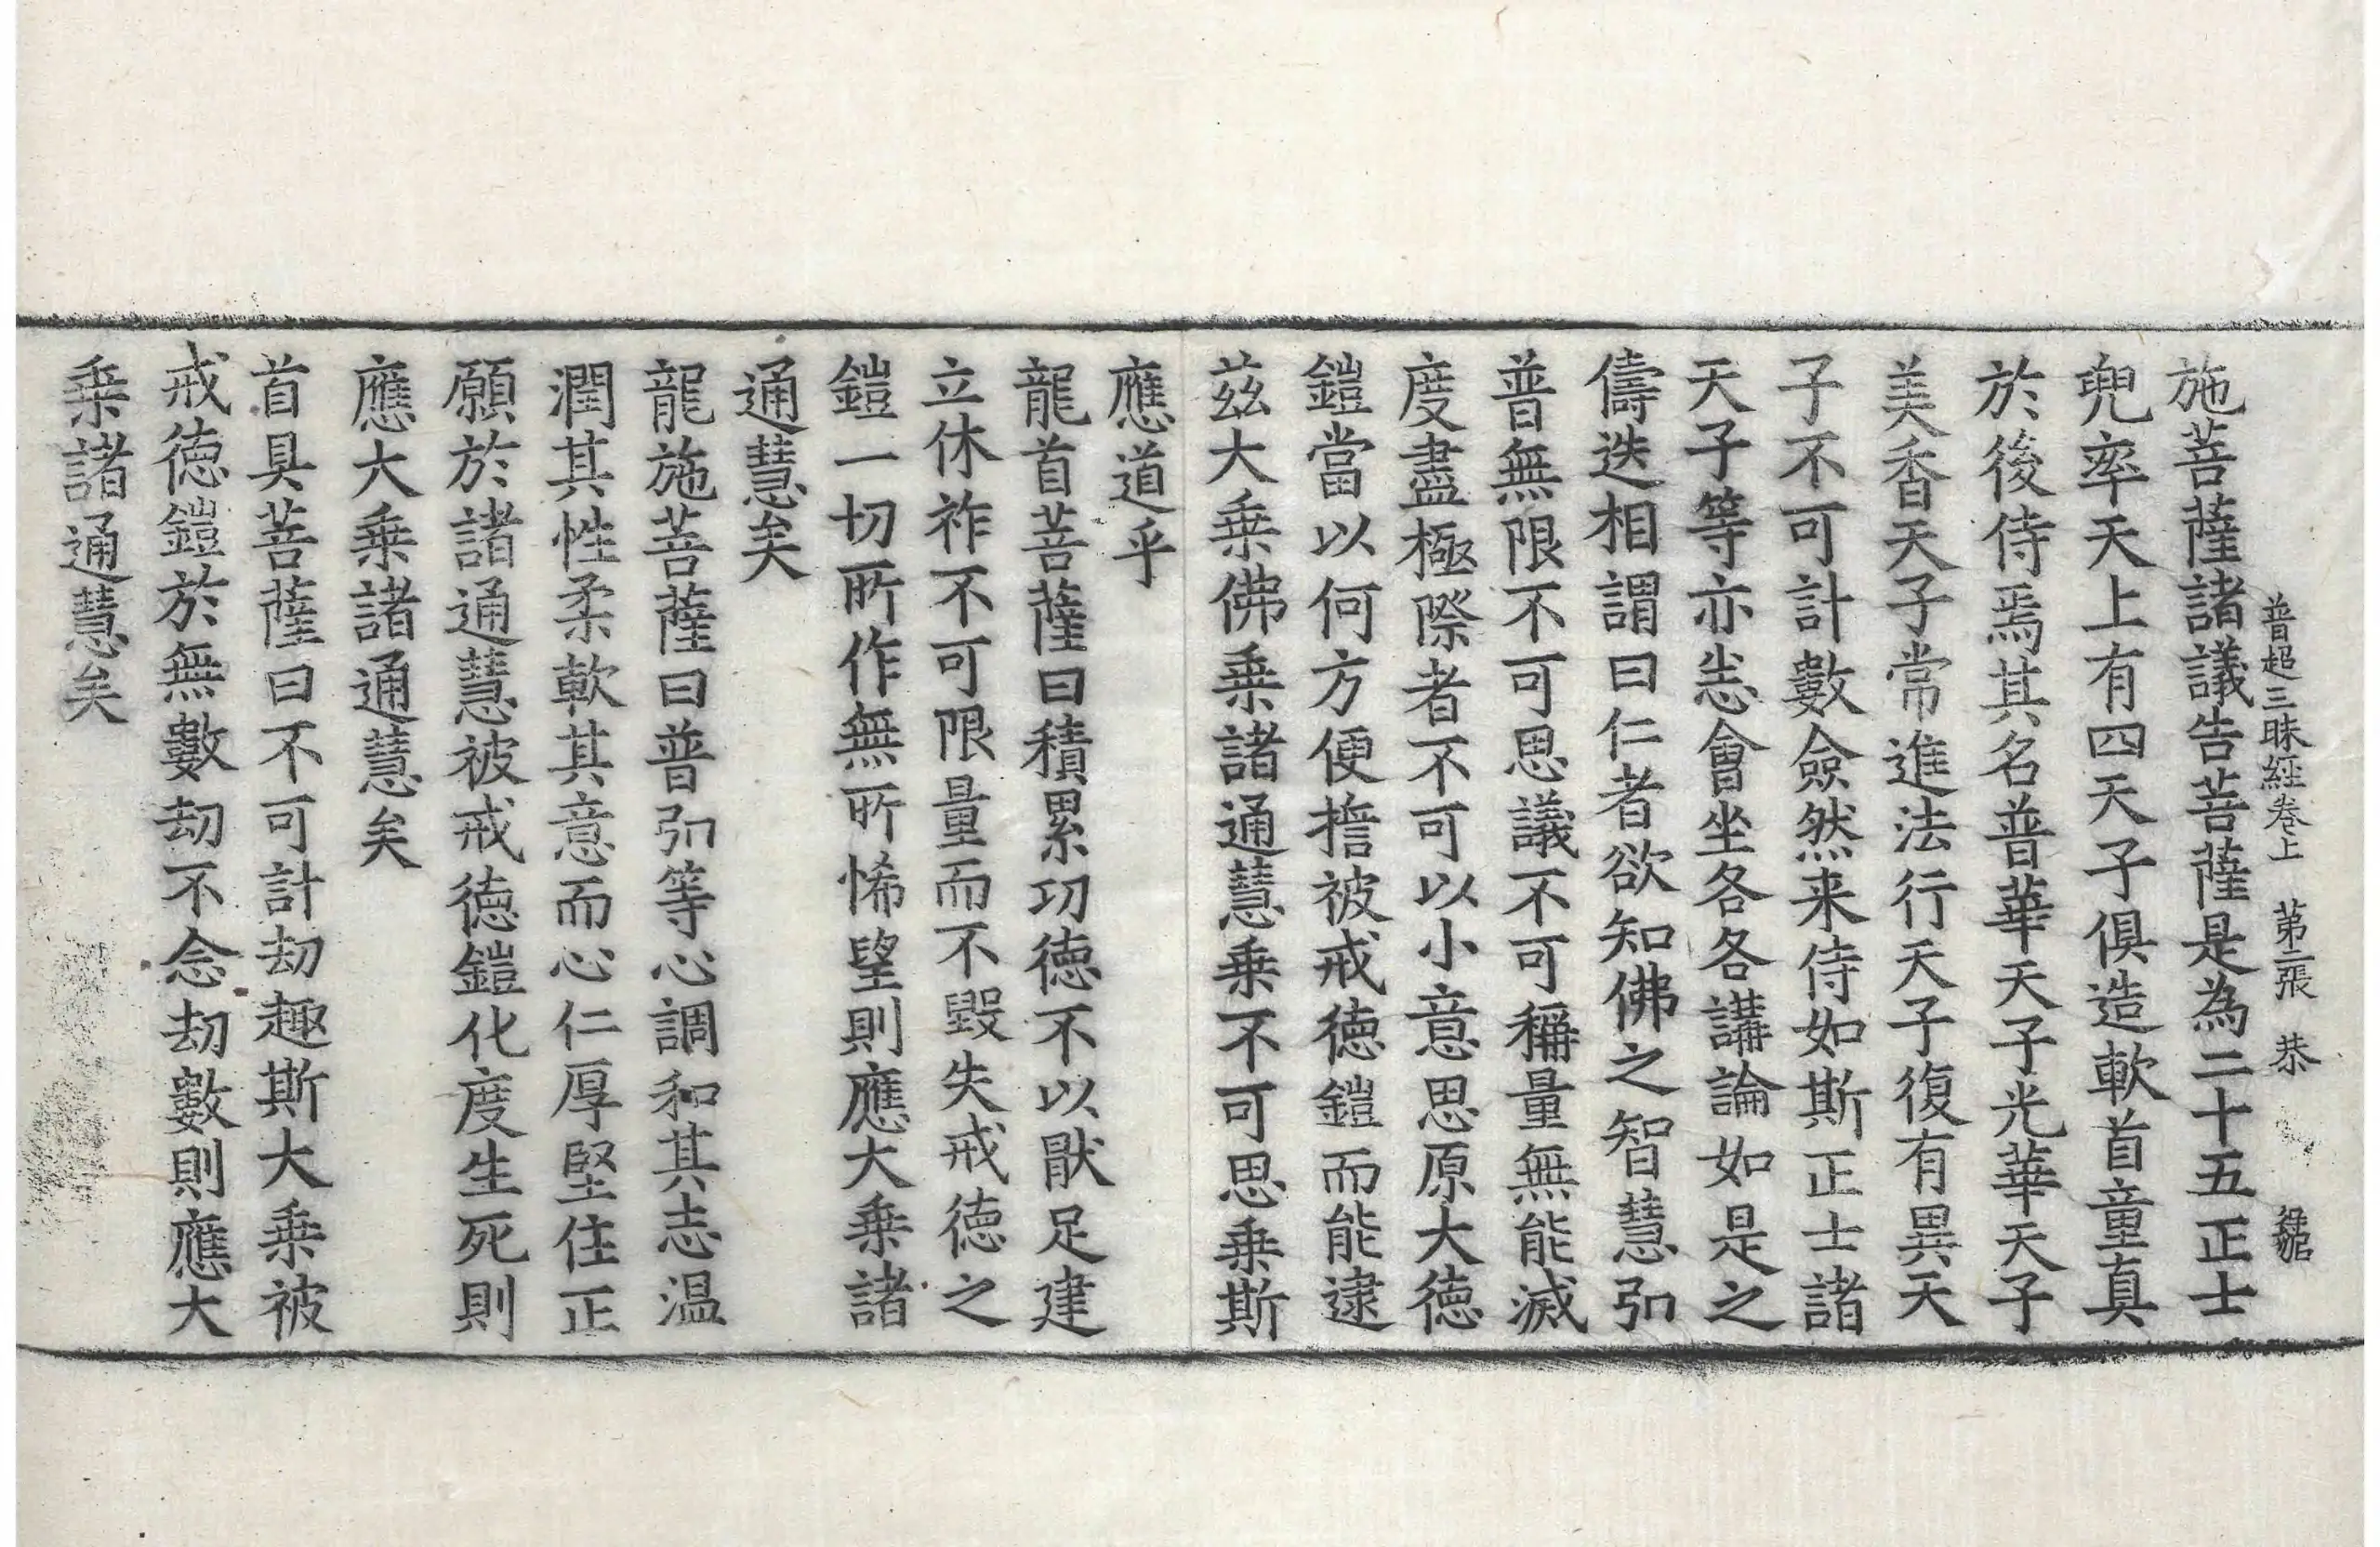 普超三昧經卷上　第二張　恭
施菩薩諸議告菩薩是為二十五正士
兜率天上有四天子俱造軟首童真
於後侍焉其名普華天子光華天子
美香天子常進法行天子復有異天
子不可計數僉然来侍如斯正士諸
天子等亦悉會坐各各講論如是之
儔迭相謂曰仁者欲知佛之智慧弘
普無限不可思議不可稱量無能滅
度盡極際者不可以小意思原大德
鎧當以何方便擔被戒德鎧而能逮
茲大乗佛乗諸通慧乗不可思乗斯
應道乎
龍首菩薩曰積累功德不以猒足建
立休祚不可限量而不毀失戒德之
鎧一切所作無所悕望則應大乗諸
通慧矣
龍施菩薩曰普弘等心調和其志温
潤其性柔軟其意而心仁厚堅住正
願於諸通慧被戒德鎧化度生死則
應大乗諸通慧矣
首具菩薩曰不可計劫趣斯大乗被
戒德鎧於無數劫不念劫數則應大
乗諸通慧矣